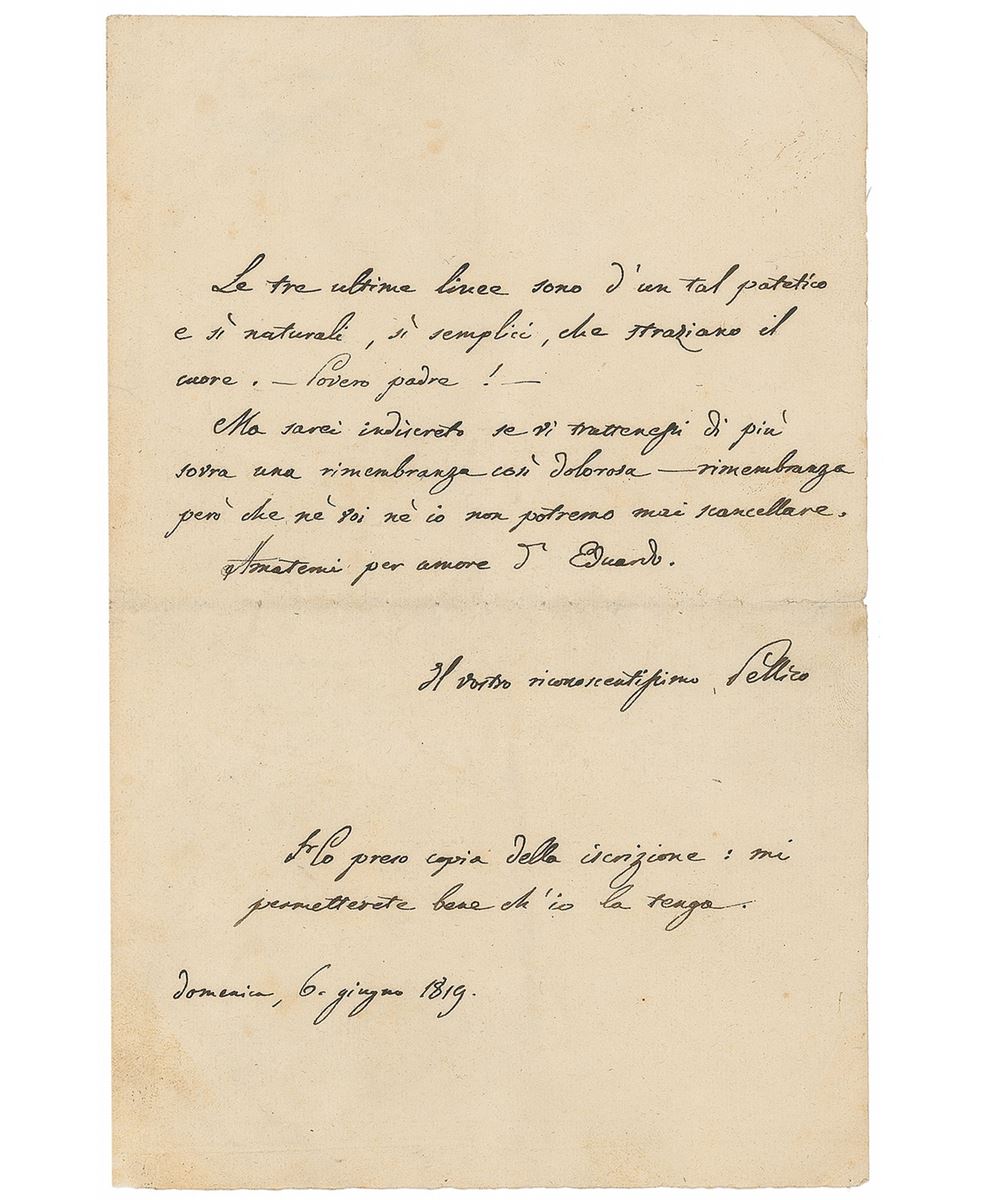 Le tre ultime linee sono d'un tal patetico
e sì naturali, sì semplici, che straziano il
cuore. — Povero padre! —
Ma sarei indiscreto se vi trattenessi di più
sovra una rimembranza così dolorosa — rimembranza
però che nè voi nè io non potremo mai scancellare.
Amatemi per amore d'Eduardo.
Il vostro riconoscentissimo Pellico
Ho preso copia della iscrizione: mi
permetterete bene ch'io la tenga.
domenica, 6. giugno 1819.